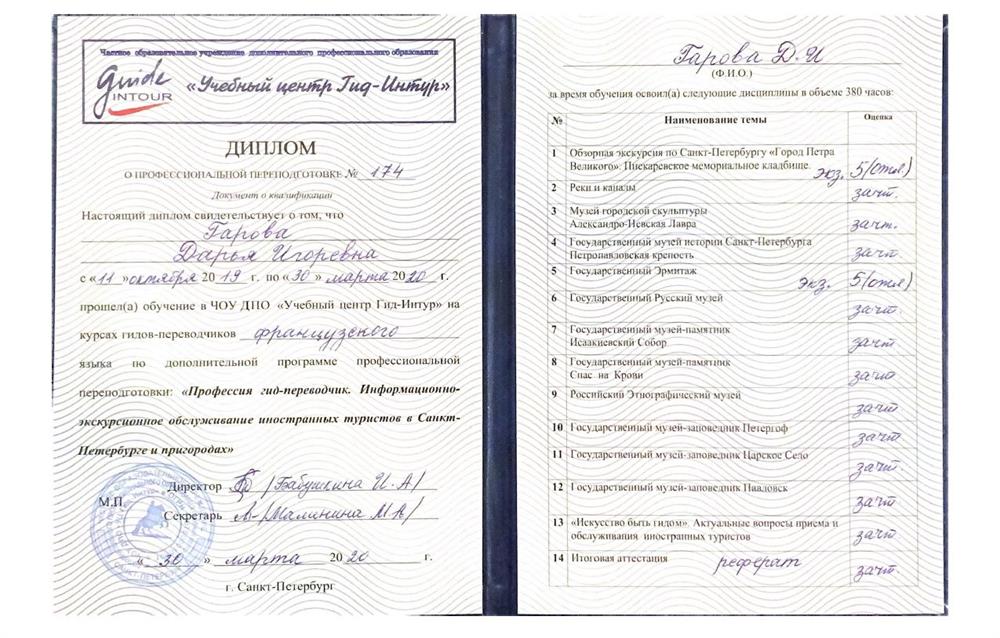 Частное образовательное учреждение дополнительного профессионального образования
Guide
INTOUR
«Учебный центр Гид-Интур»
ДИПЛОМ
О ПРОФЕССИОНАЛЬНОЙ ПЕРЕПОДГОТОВКЕ № 174
Документ о квалификации
Настоящий диплом свидетельствует о том, что
Гарова
Дарья Игоревна
с «11» октября 2019 г. по «30» марта 2020 г.
прошел(а) обучение в ЧОУ ДПО «Учебный центр Гид-Интур» на
курсах гидов-переводчиков французского
языка по дополнительной программе профессиональной
переподготовки: «Профессия гид-переводчик. Информационно-
экскурсионное обслуживание иностранных туристов в Санкт-
Петербурге и пригородах»
Директор /Бабушкина И.А/
М.П.
Секретарь /Малинина М.А/
«30» марта 2020 г.
г. Санкт-Петербург
Гарова Д.И
(Ф.И.О.)
за время обучения освоил(а) следующие дисциплины в объеме 380 часов:
№ Наименование темы Оценка
1 Обзорная экскурсия по Санкт-Петербургу «Город Петра
Великого». Пискаревское мемориальное кладбище. экз. 5(отл.)
2 Реки и каналы зачт.
3 Музей городской скульптуры
Александро-Невская Лавра зачт.
4 Государственный музей истории Санкт-Петербурга
Петропавловская крепость зачт
5 Государственный Эрмитаж экз. 5(отл)
6 Государственный Русский музей зачт.
7 Государственный музей-памятник
Исаакиевский Собор зачт
8 Государственный музей-памятник
Спас на Крови зачт
9 Российский Этнографический музей зачт
10 Государственный музей-заповедник Петергоф зачт
11 Государственный музей-заповедник Царское Село зачт
12 Государственный музей-заповедник Павловск зачт
13 «Искусство быть гидом». Актуальные вопросы приема и
обслуживания иностранных туристов зачт
14 Итоговая аттестация реферат зачт.